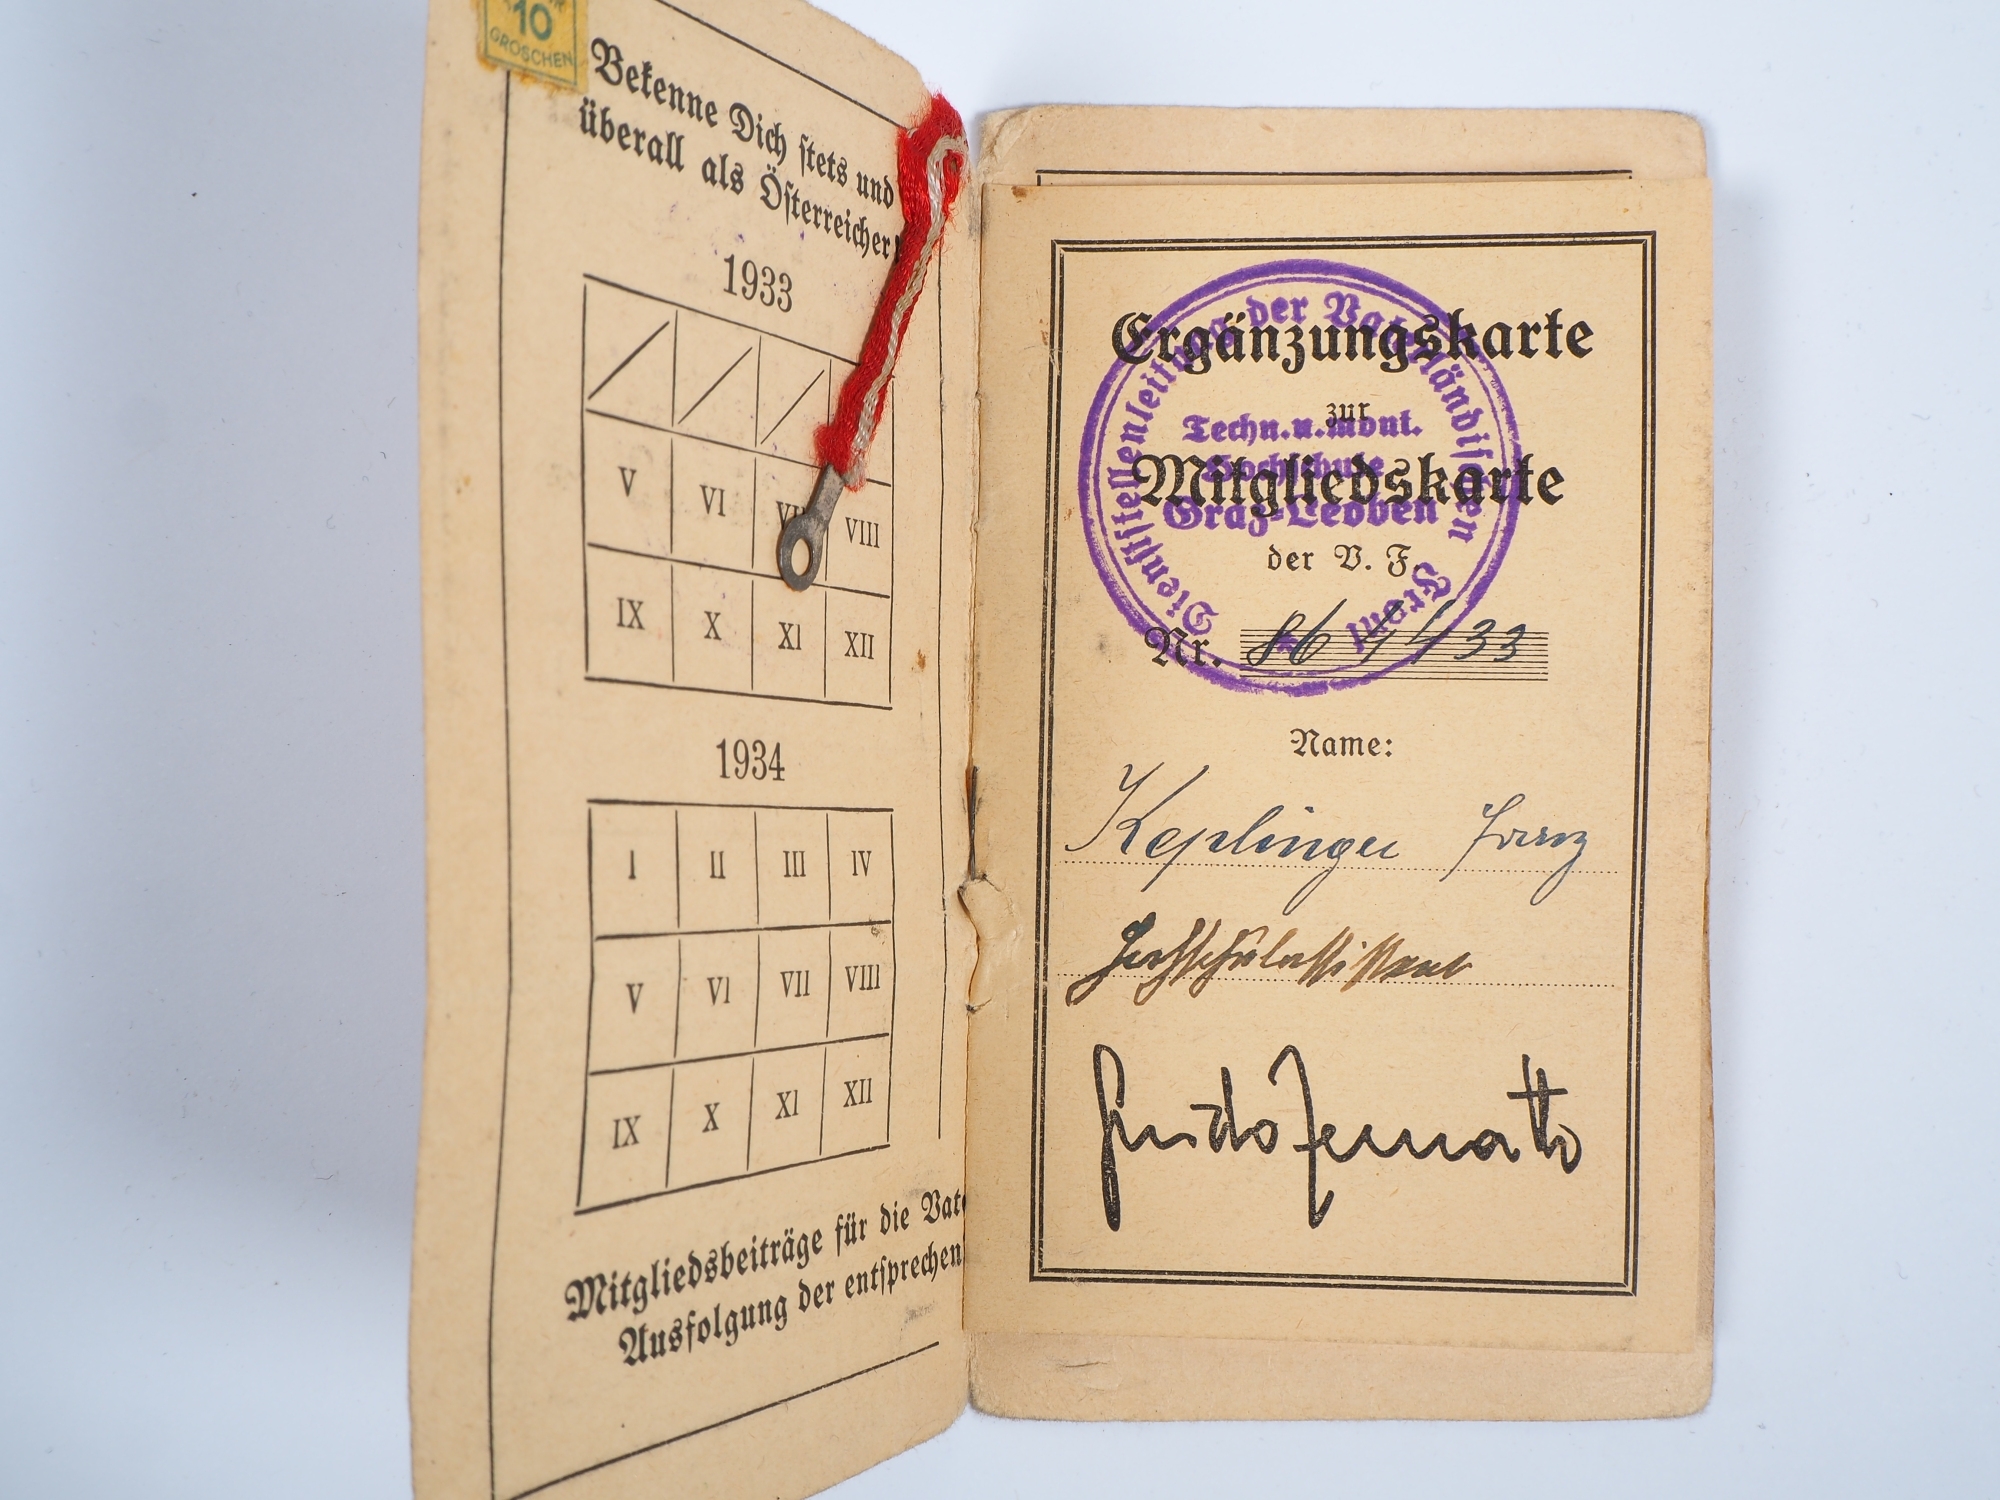 10
GROSCHEN
Bekenne Dich stets und
überall als Österreicher!
1933
V VI VII VIII
IX X XI XII
1934
I II III IV
V VI VII VIII
IX X XI XII
Mitgliedsbeiträge für die Vate
Ausfolgung der entsprechen
Ergänzungskarte
zur
Mitgliedskarte
der V. F.
Nr.
Dienststellenleitung der Vaterländischen Front
Techn. u. Mont.
Hochschule
Graz-Leoben
Name:
Keplinger Franz
Hochschulassistent
Guido Zernatto